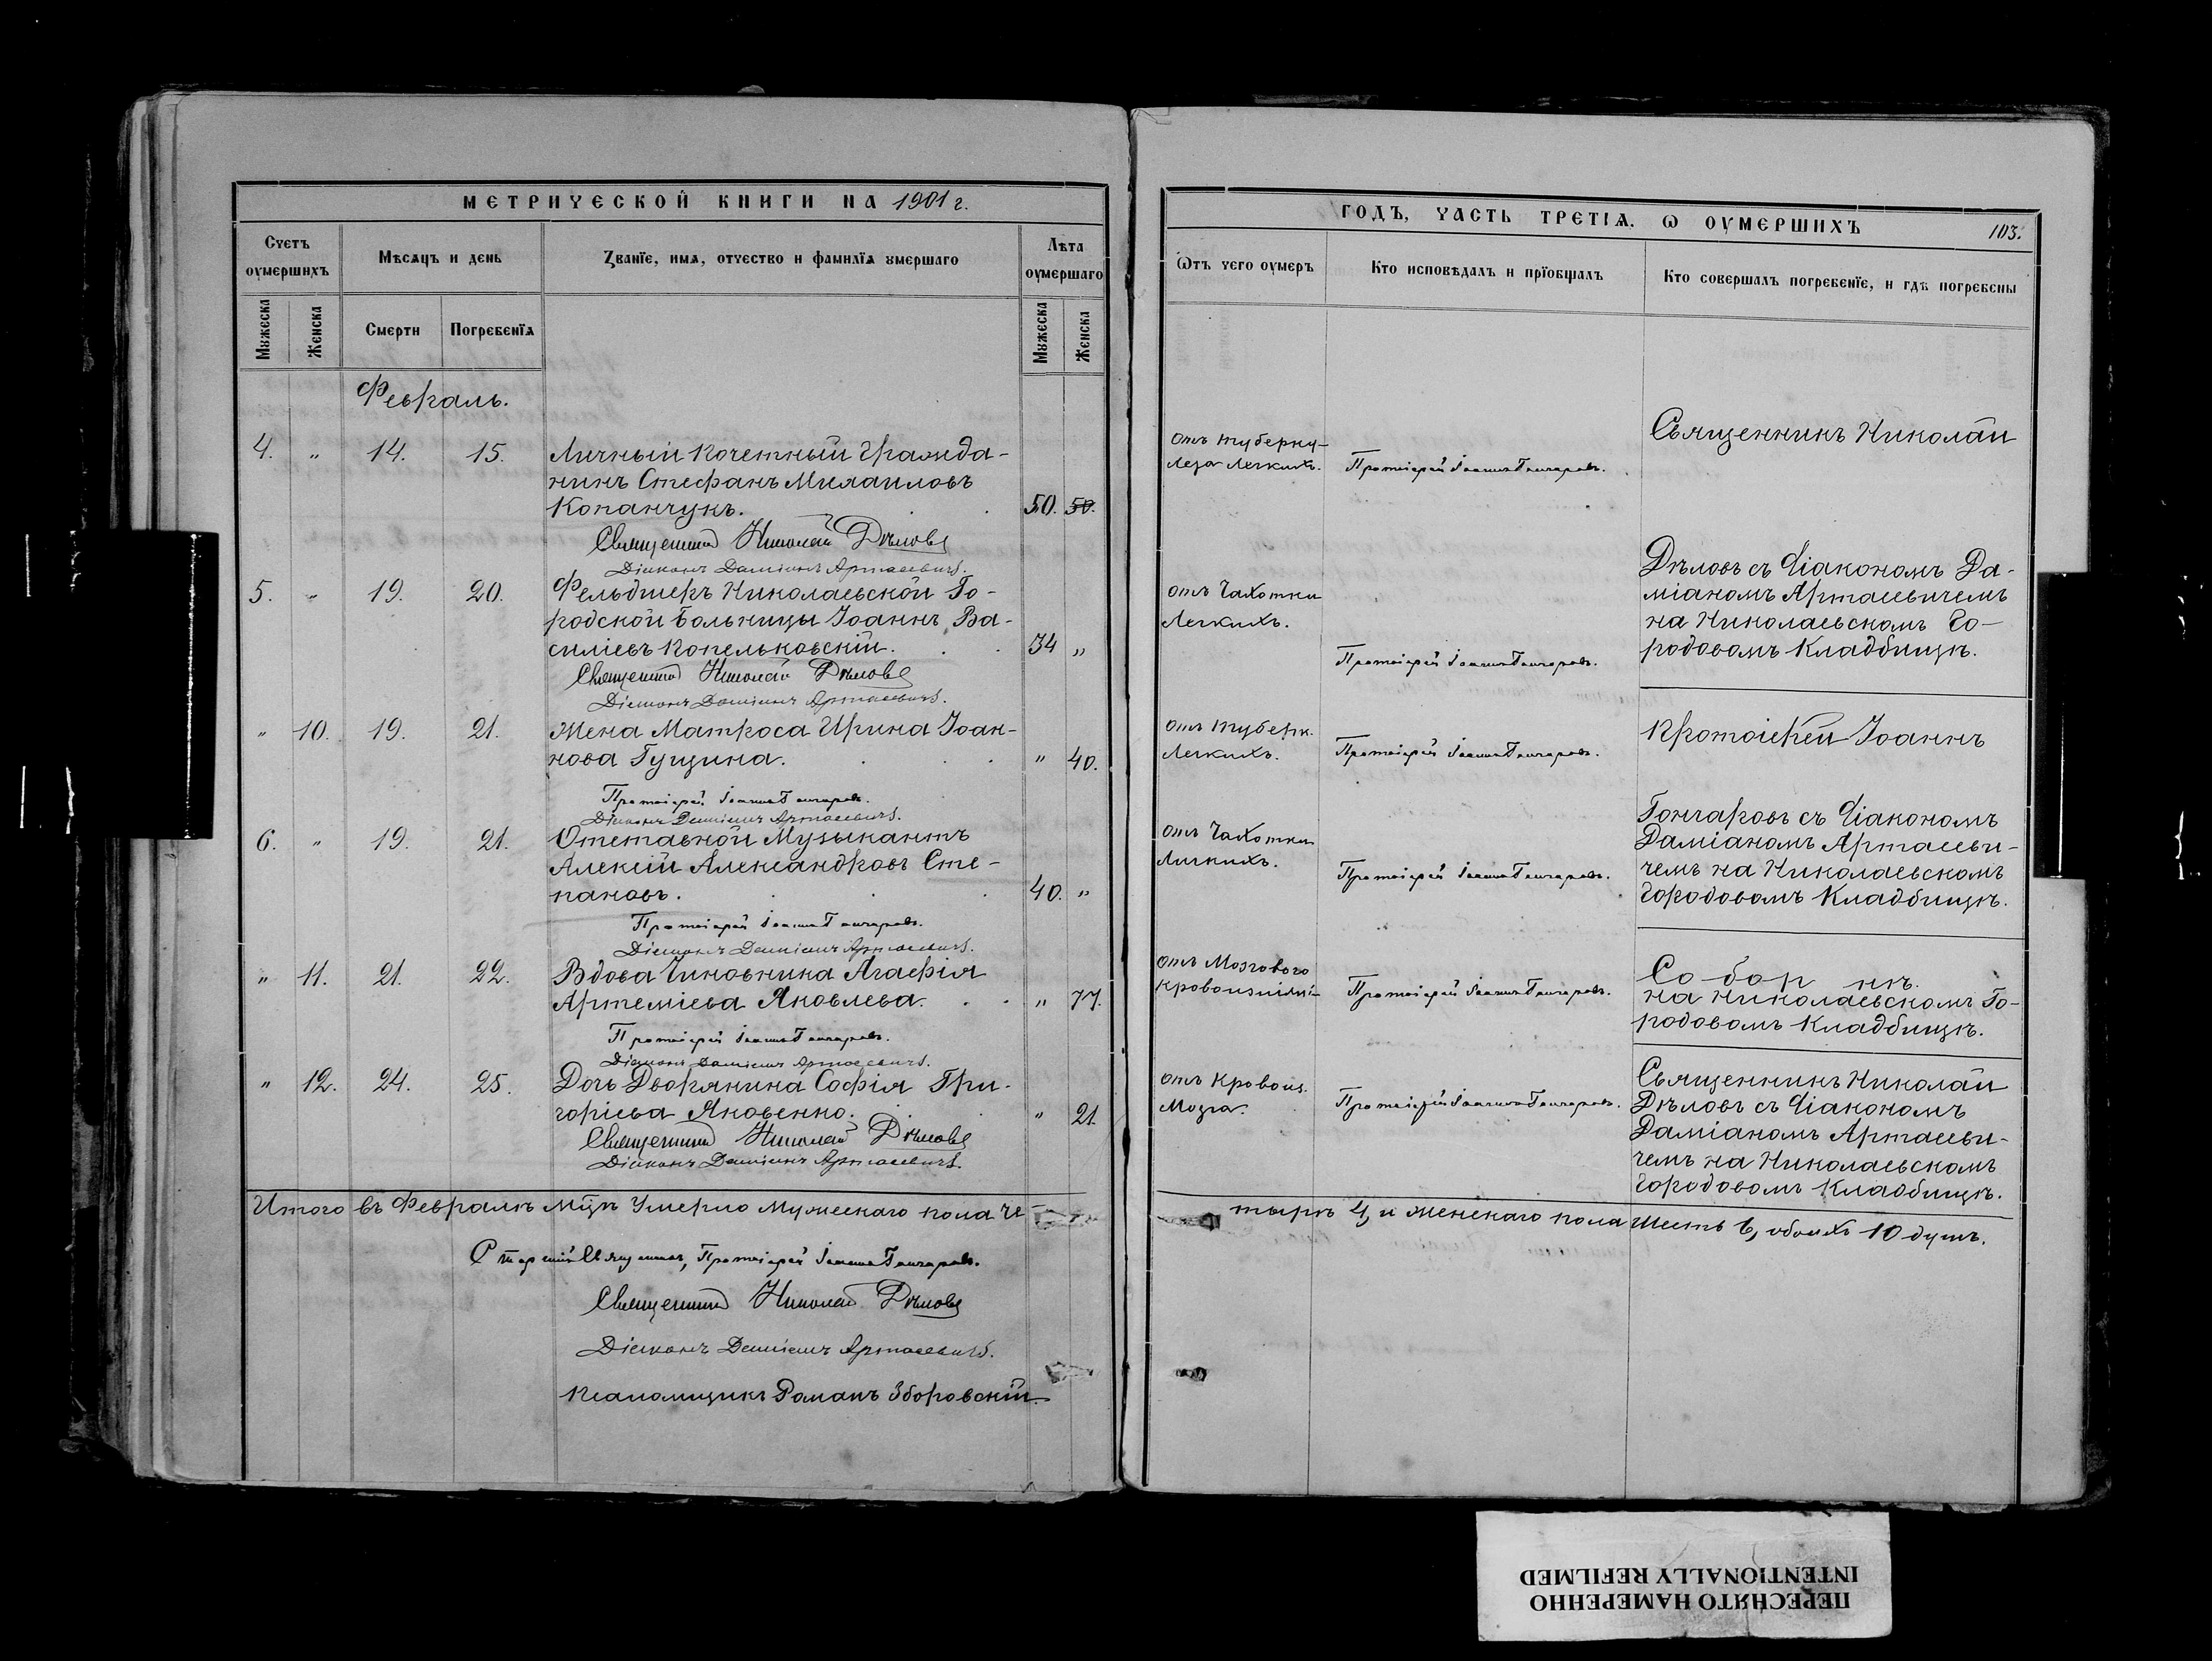 МЕТРИЧЕСКОЙ КНИГИ НА 1901 г.
Счетъ оумершихъ
Мѣсяцъ и день
Званїе, имя, отчество и фамилїя умершаго
Лѣта оумершаго
Мужеска
Женска
Смерти
Погребенїя
Мужеска
Женска
Февраль.
4. " 14. 15. Личный Почетный Гражда-
нинъ Стефанъ Михаиловъ
Копанчукъ. 50. 50.
Священникъ Николай Дѣловъ
Діаконъ Даміанъ Артасевичъ.
5. " 19. 20. Фельдшеръ Николаевской Го-
родской Больницы Іоаннъ Ва-
силіевъ Копельковскій. 34 "
Священникъ Николай Дѣловъ
Діаконъ Даміанъ Артасевичъ.
" 10. 19. 21. Жена Матроса Ирина Іоан-
нова Гущина. " 40.
Протоіерей Іоаннъ Гончаровъ.
Діаконъ Даміанъ Артасевичъ.
6. " 19. 21. Отставной Музыкантъ
Алексій Александровъ Сте-
пановъ. 40. "
Протоіерей Іоаннъ Гончаровъ.
Діаконъ Даміанъ Артасевичъ.
" 11. 21. 22. Вдова Чиновника Агафія
Артеміева Яковлева. " 77.
Протоіерей Іоаннъ Гончаровъ.
Діаконъ Даміанъ Артасевичъ.
" 12. 24. 25. Дочь Дворянина Софія Гри-
горіева Яковенко. " 21.
Священникъ Николай Дѣловъ
Діаконъ Даміанъ Артасевичъ.
Итого въ Февралѣ мцѣ Умерло Мужескаго пола че-
Старшій Священникъ, Протоіерей Іоаннъ Гончаровъ.
Священникъ Николай Дѣловъ
Діаконъ Даміанъ Артасевичъ.
Псаломщикъ Романъ Зборовскій.
ГОДЪ, ЧАСТЬ ТРЕТІЯ. Ѡ ОУМЕРШИХЪ
103.
Ѿтъ чего оумеръ
Кто исповѣдалъ и прїобщалъ
Кто совершалъ погребенїе, и гдѣ погребены
отъ туберку-
леза Легкихъ.
Протоіерей Іоаннъ Гончаровъ.
Священникъ Николай
Дѣловъ съ Діакономъ Да-
міаномъ Артасевичемъ
на Николаевскомъ Го-
родовомъ Кладбищѣ.
отъ Чахотки
Легкихъ.
Протоіерей Іоаннъ Гончаровъ.
отъ туберк.
Легкихъ.
Протоіерей Іоаннъ Гончаровъ.
Протоіерей Іоаннъ
Гончаровъ съ Діакономъ
Даміаномъ Артасеви-
чемъ на Николаевскомъ
Городовомъ Кладбищѣ.
отъ Чахотки
Легкихъ.
Протоіерей Іоаннъ Гончаровъ.
отъ Мозгового
кровоизліянія
Протоіерей Іоаннъ Гончаровъ.
Со бор нѣ.
на Николаевскомъ Го-
родовомъ Кладбищѣ.
отъ Кровоиз.
Мозга.
Протоіерей Іоаннъ Гончаровъ.
Священникъ Николай
Дѣловъ съ Діакономъ
Даміаномъ Артасеви-
чемъ на Николаевскомъ
Городовомъ Кладбищѣ.
тыре 4, и женскаго пола Шесть 6, обоихъ 10 душъ.
ПЕРЕСНЯТО НАМЕРЕННО
INTENTIONALLY REFILMED